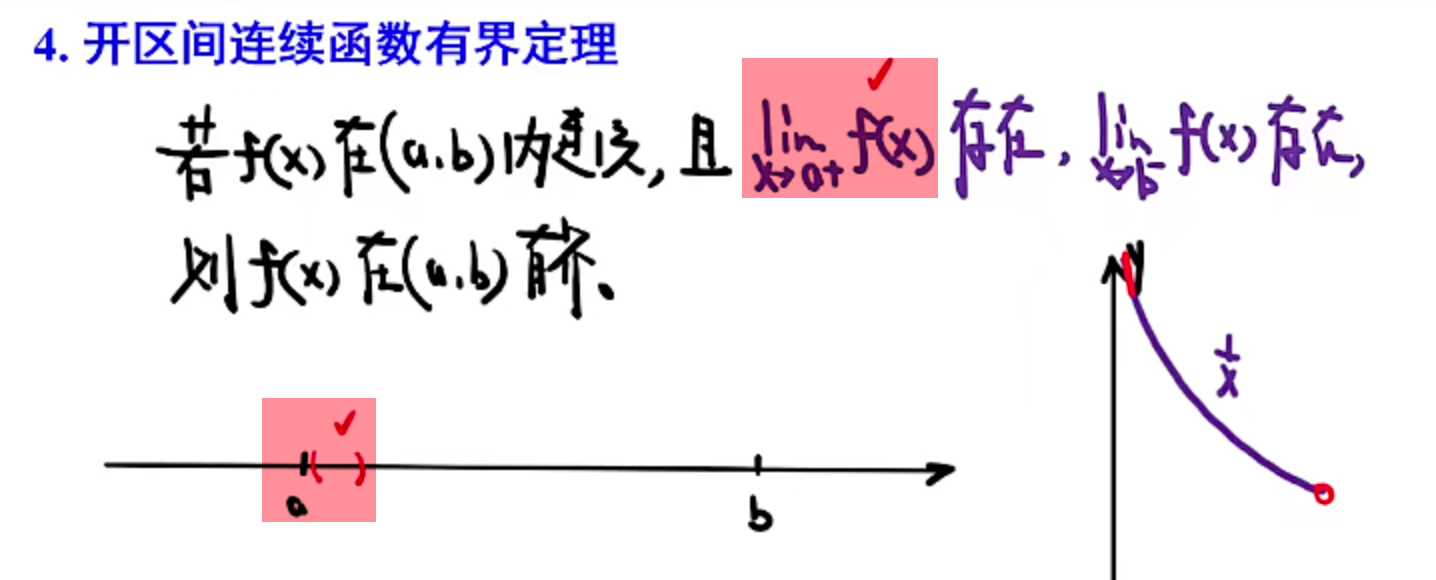 4. 开区间连续函数有界定理
若 f(x) 在(a.b)内连续, 且 lim x→a+ f(x) 存在, lim x→b- f(x) 存在,
则 f(x) 在(a.b) 有界.
y
1/x
a
b